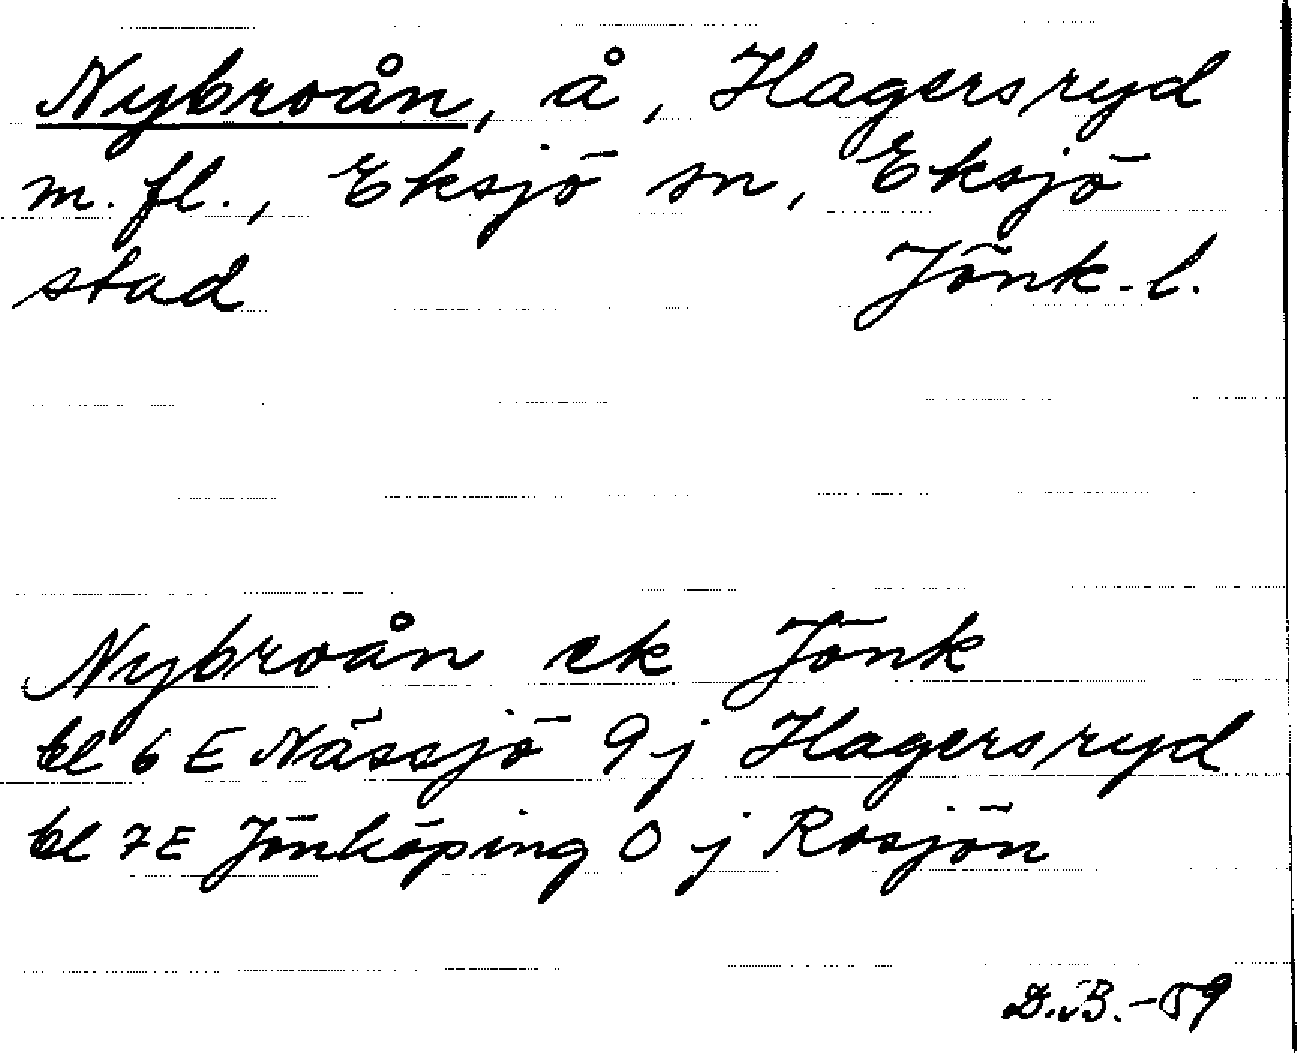 Nybroån, å, Hagersryd
m. fl., Eksjö sn, Eksjö
stad Jönk. l.
Nybroån ek Jönk
bl 6 E Nässjö 9 j Hagersryd
bl 7 E Jönköping 0 j Rosjön
D.B. -59